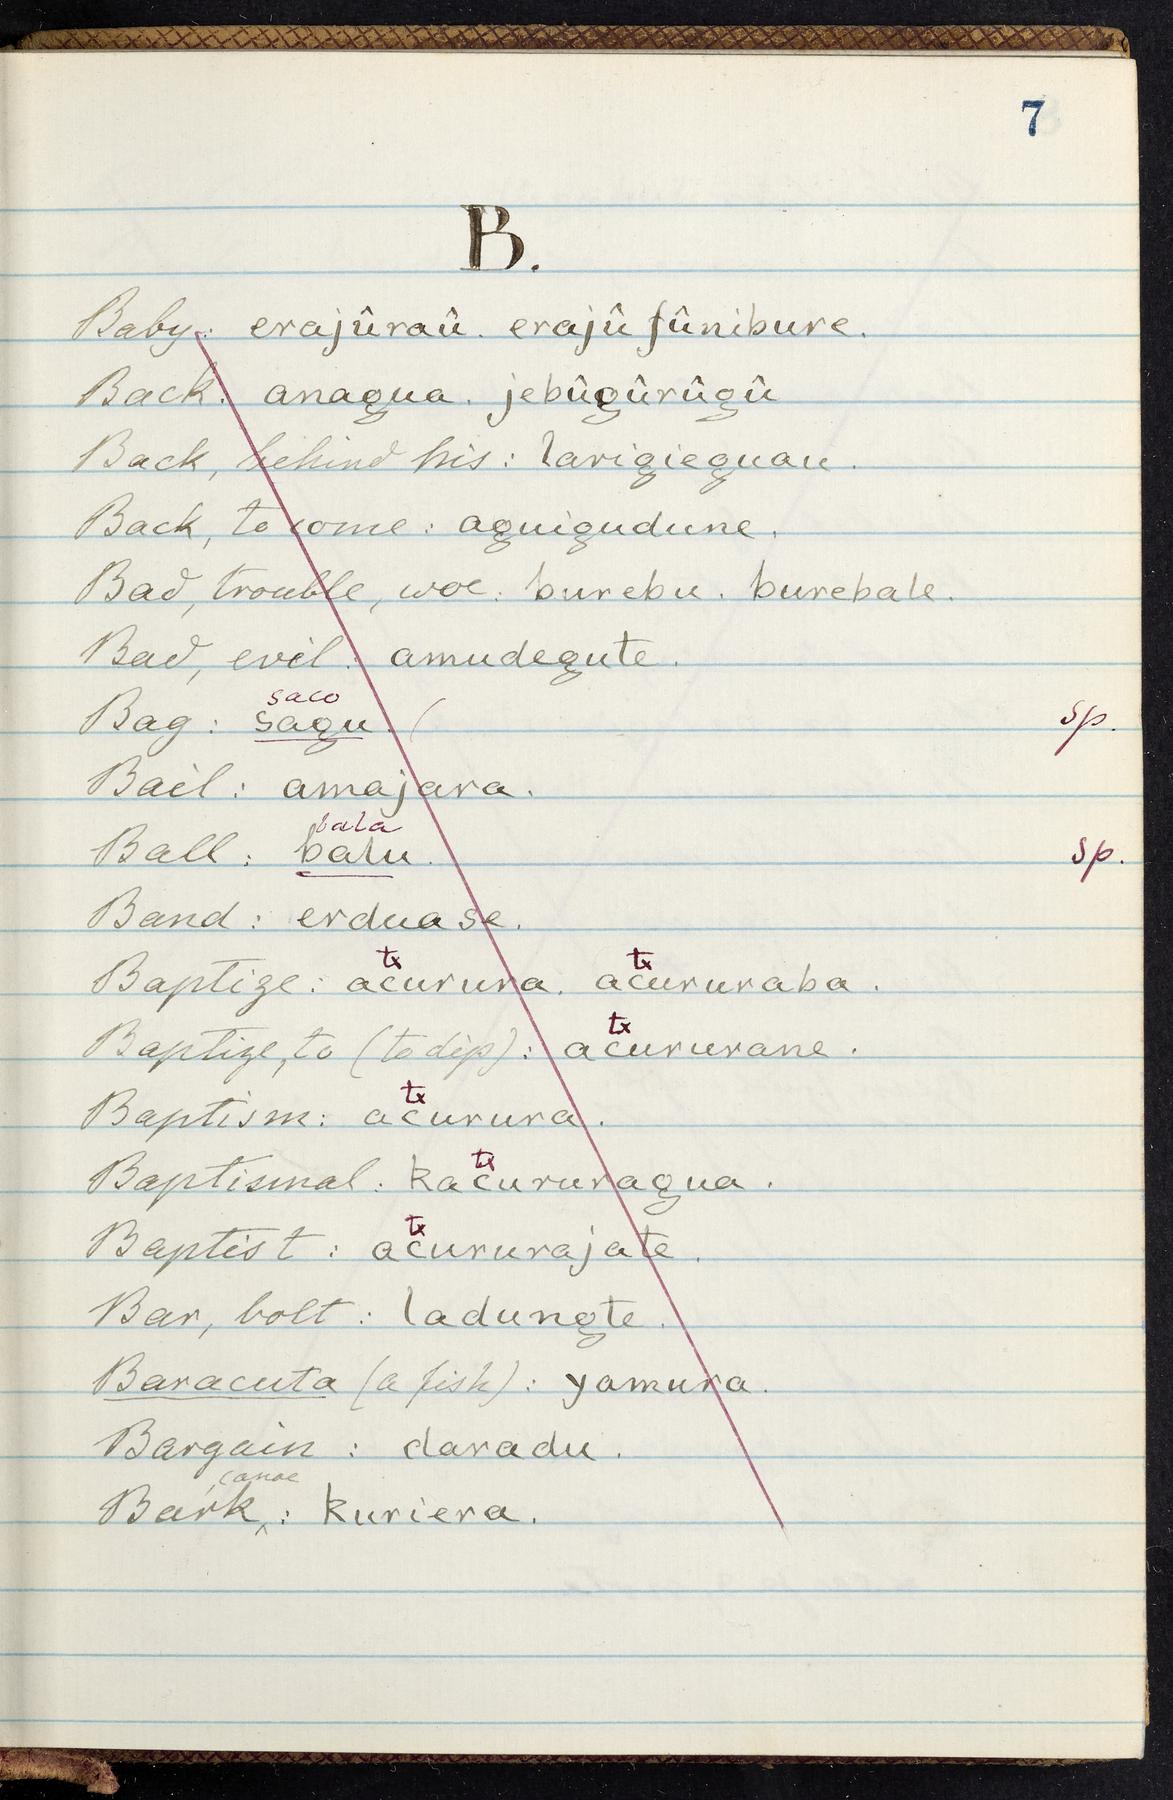 7
B.
Baby: erajûraû. erajû fûnibure.
Back: anagua. jebûgûrûgû
Back, behind his: larigieguau.
Back, to come: aguigudune.
Bad, trouble, woe: burebu. burebale.
Bad, evil: amudegute.
saco
Bag: sagu. ( sp.
Bail: amajara.
bala
Ball: balu. sp.
Band: erduase.
tx tx
Baptize: acurura. acururaba.
tx
Baptize, to (to dip): acururane.
tx
Baptism: acurura.
tx
Baptismal: kacururagua.
tx
Baptist: acururajate.
Bar, bolt: ladungte.
Baracuta (a fish): yamura.
Bargain: daradu.
, canoe
Bark ‸: kuriera.